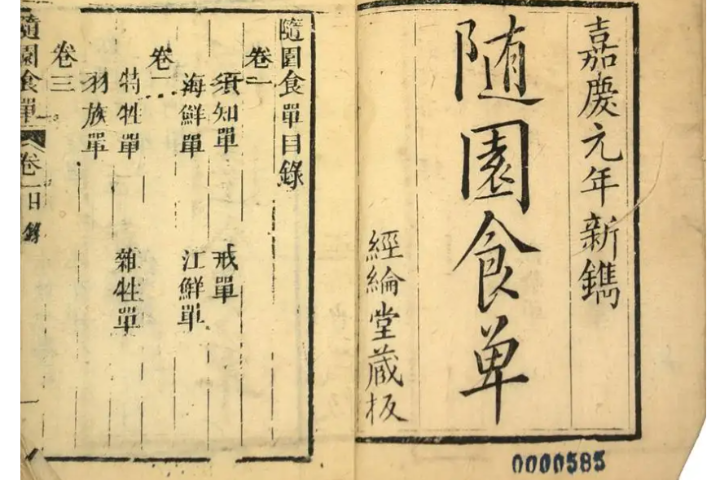 嘉慶元年新鐫
随園食单
經綸堂藏板
0000585
隨園食單目錄
卷一
須知單 戒單
海鮮單 江鮮單
卷二
特牲單 雜牲單
羽族單
卷三
隨園食單 卷一目錄